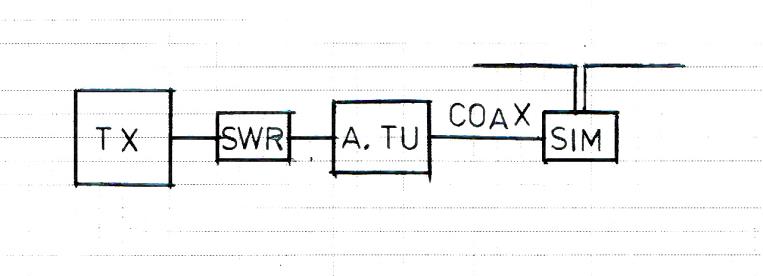 TX
SWR
A.TU
COAX
SIM